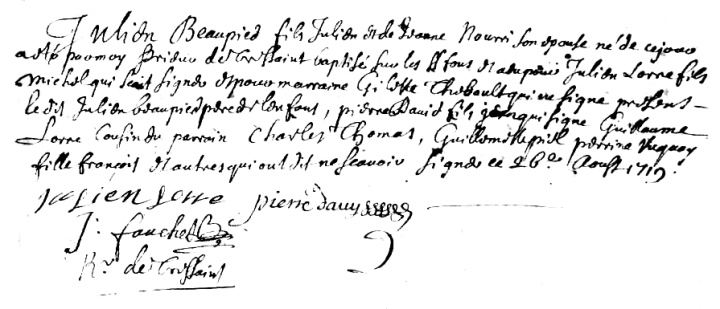 Julien Beaupied fils Julien et de Jeanne Nourri son epouse né de ce jour
a esté par moy Prieur de baptisé sur les fons et a eu pour Julien Lorre fils
Michel qui s'ait signer et pour marraine Gilette Thebault qui ne signe presents
le dit Julien beaupied pere de l'enfant, pierre David fils jean qui signe Guillaume
Lorre Cousin du parrain Charles Thomas, Guillemette perrine
fille François et autres qui ont dit ne scavoir signer ce 26e Aoust 1719.
Julien Lorre pierre davy
J. fouchet
Rr. de